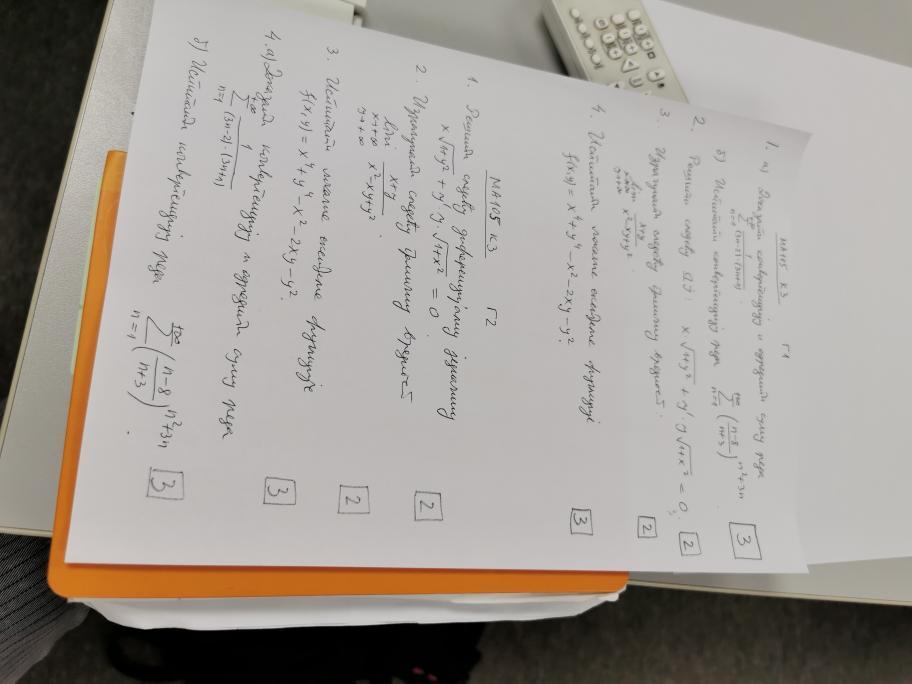 MA105 K3 Г1
1. а) Доказати конвергенцију и одредити суму реда
\sum_{n=1}^{+\infty} \frac{1}{(3n-2)\cdot(3n+1)}
б) Испитати конвергенцију реда \sum_{n=1}^{+\infty} \left(\frac{n-8}{n+3}\right)^{n^2+3n}. [3]
2. Решити следећу ДЈ: x\sqrt{1+y^2} + y' y\sqrt{1+x^2} = 0. [2]
3. Израчунати следећу граничну вредност: [2]
\lim_{x\to+\infty, y\to+\infty} \frac{x+y}{x^2-xy+y^2}
4. Испитати локалне екстреме функције
f(x,y) = x^4 + y^4 - x^2 - 2xy - y^2. [3]
MA105 K3 Г2
1. Решити следећу диференцијалну једначину
x\sqrt{1+y^2} + y' y\cdot\sqrt{1+x^2} = 0. [2]
2. Израчунати следећу граничну вредност
\lim_{x\to+\infty, y\to+\infty} \frac{x+y}{x^2-xy+y^2}. [2]
3. Испитати локалне екстреме функције
f(x,y) = x^4 + y^4 - x^2 - 2xy - y^2. [3]
4. а) Доказати конвергенцију и одредити суму реда
\sum_{n=1}^{+\infty} \frac{1}{(3n-2)\cdot(3n+1)}
б) Испитати конвергенцију реда \sum_{n=1}^{+\infty} \left(\frac{n-8}{n+3}\right)^{n^2+3n}. [3]